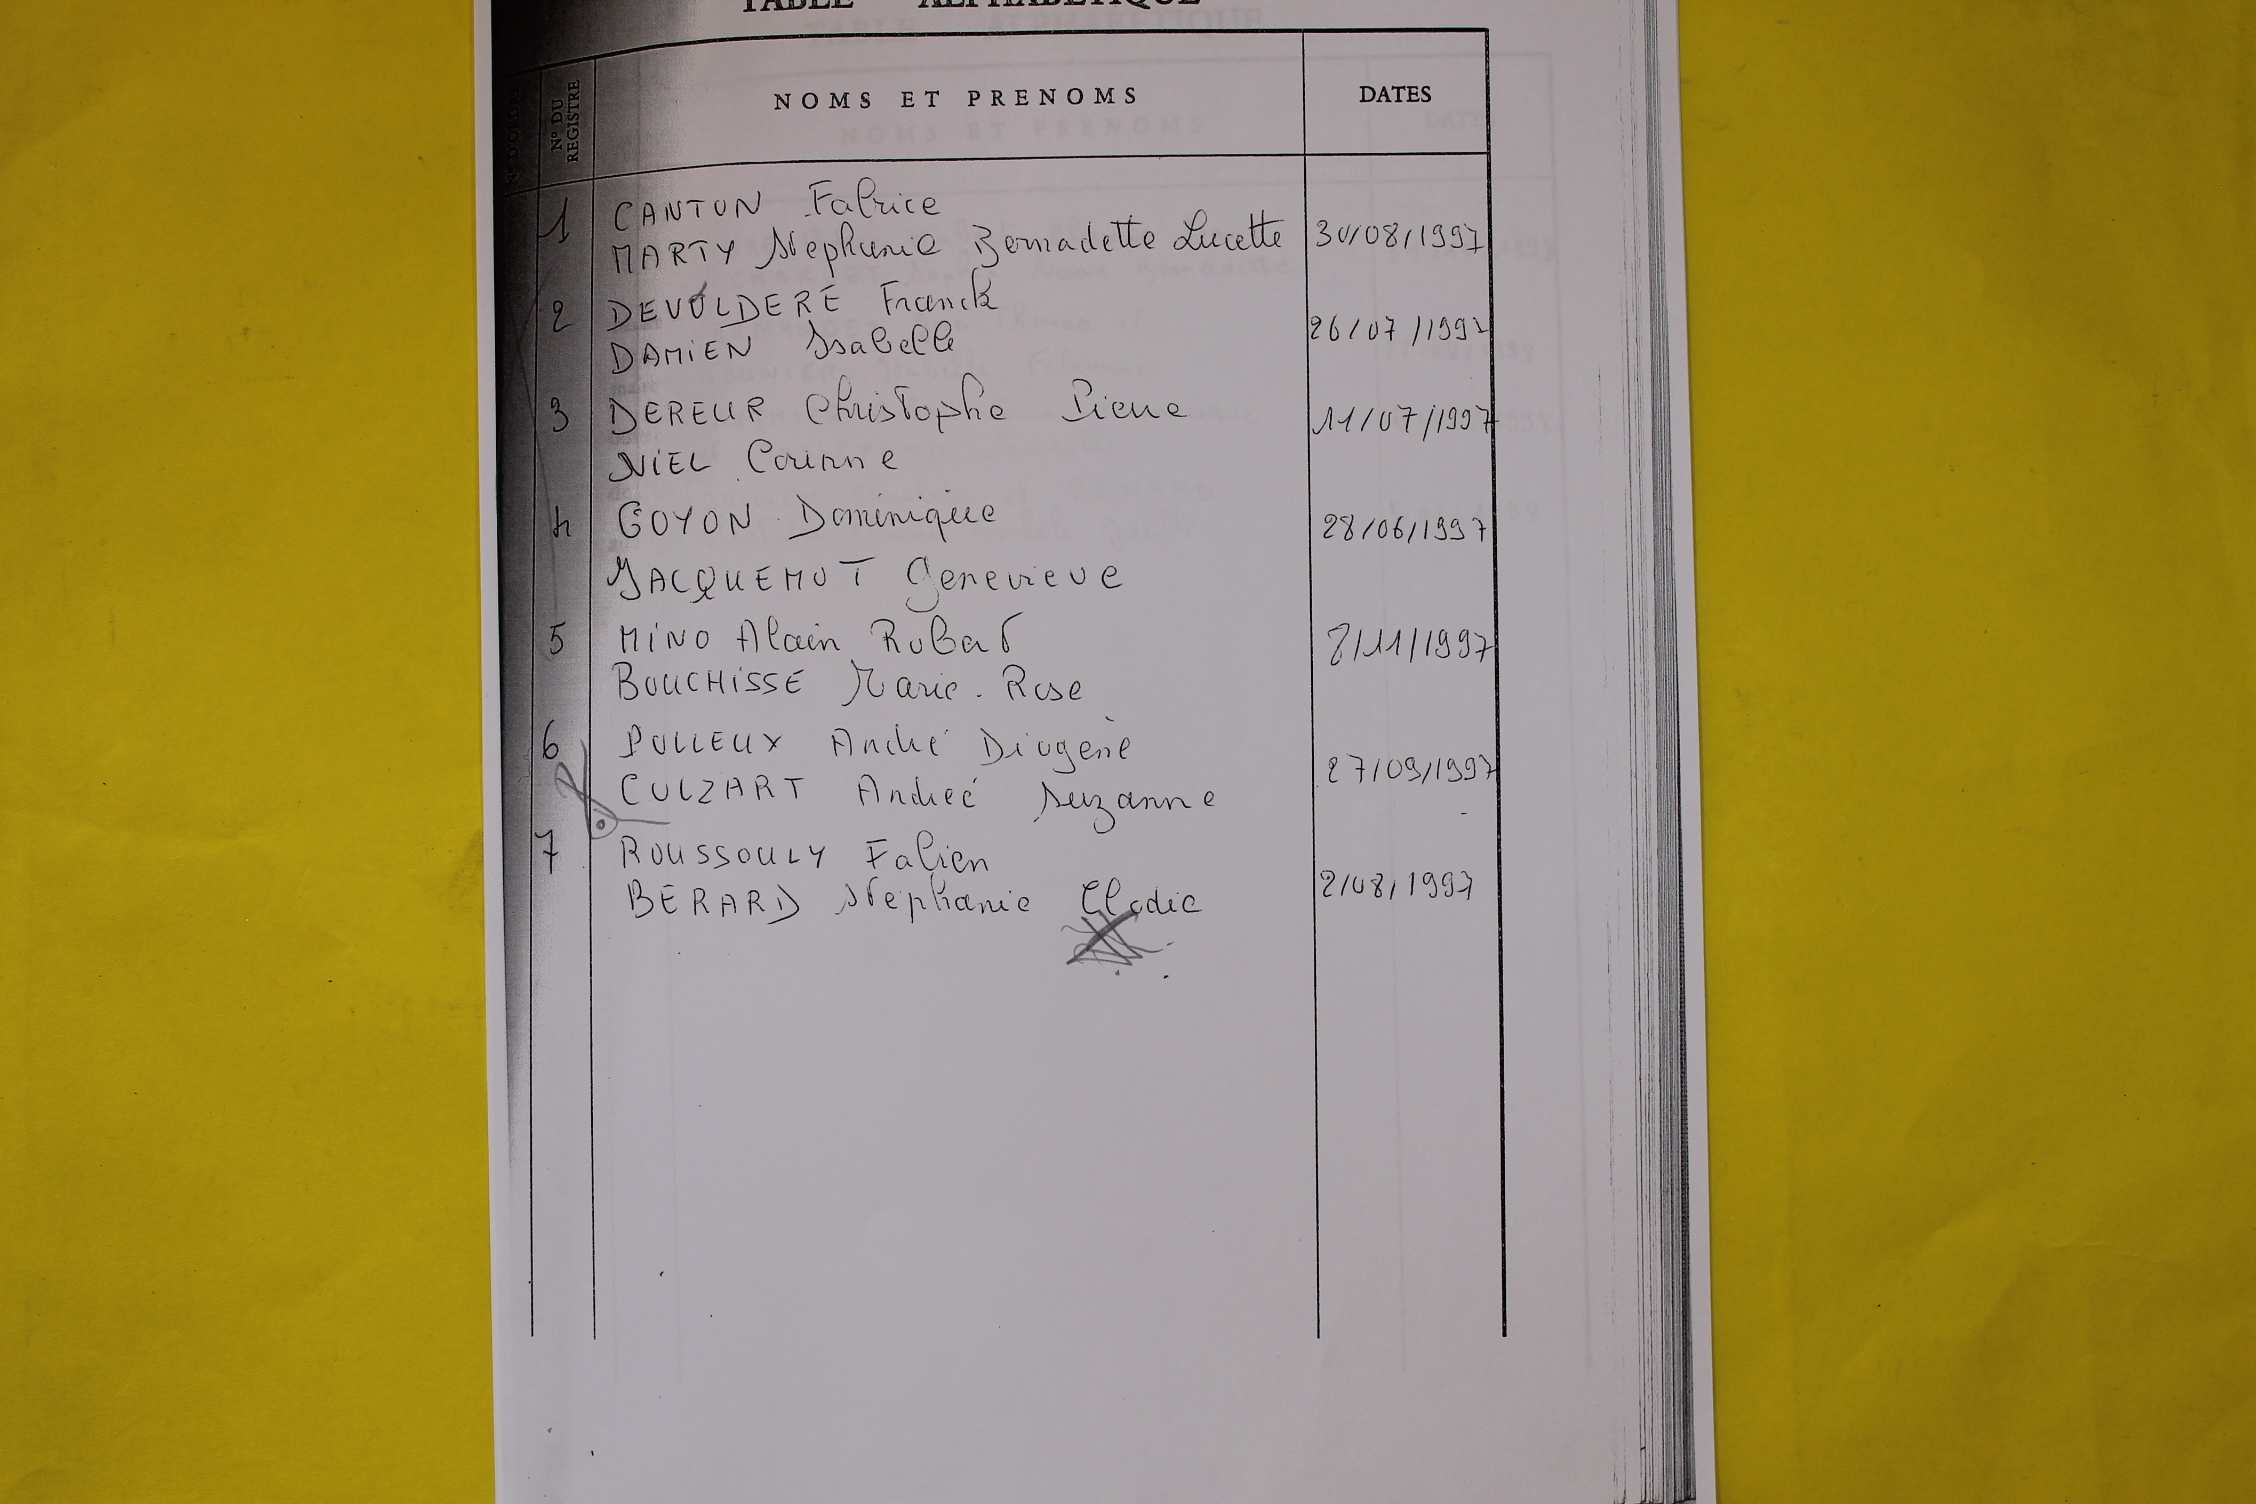 TABLE ALPHABETIQUE
N° DU REGISTRE NOMS ET PRENOMS DATES
1 CANTON Fabrice
MARTY Stephanie Bernadette Lucette 30/08/1997
2 DEVOLDERE Franck
DAMIEN Isabelle 26/07/1997
3 DEREUR Christophe Pierre 11/07/1997
NIEL Corinne
4 GOYON Dominique 28/06/1997
JACQUEMOT Genevieve
5 MINO Alain Robert 8/11/1997
BOUCHISSE Marie-Rose
6 POLLEUX André Diogène
COLZART Andreé Suzanne 27/09/1997
7 ROUSSOULY Fabien
BERARD Stephanie Elodie 2/08/1997